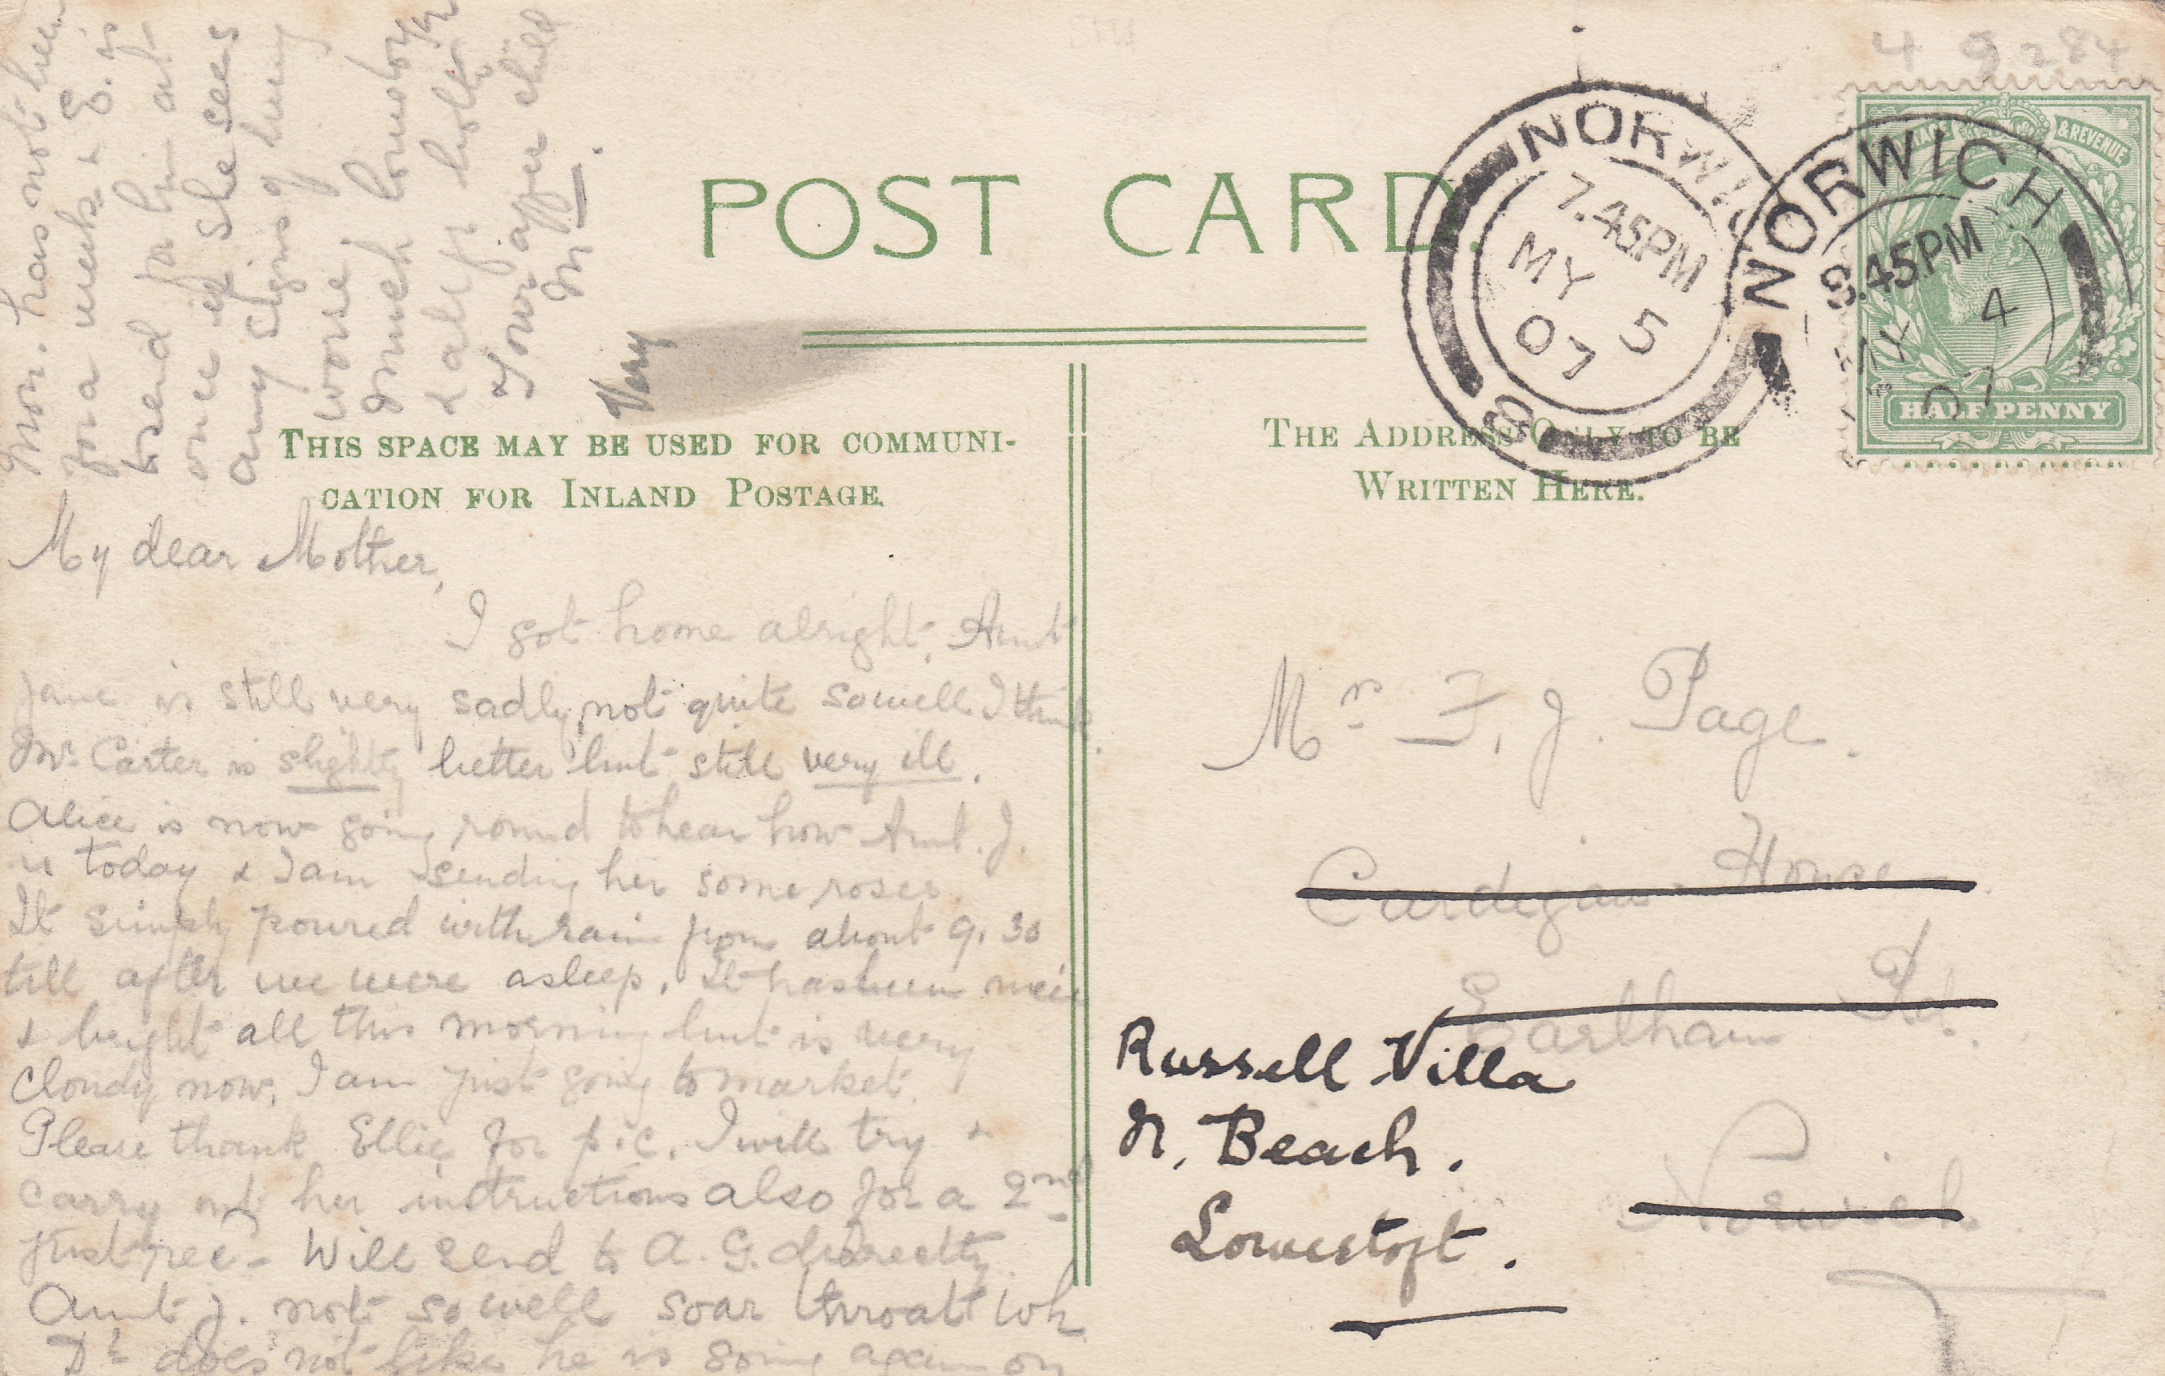 POST CARD.
THIS SPACE MAY BE USED FOR COMMUNI-
CATION FOR INLAND POSTAGE.
THE ADDRESS ONLY TO BE
WRITTEN HERE.
4 9284
& REVENUE
HALFPENNY
NORWICH
7.45PM
MY 5
07
8
NORWICH
8.45PM
MY 4
07
My dear Mother,
I got home alright. Aunt
Jane is still very sadly, not quite so well I think.
Mr. Carter is slightly better but still very ill.
Alice is now going round to hear how Aunt. J.
is today & I am sending her some roses
It simply poured with rain from about 9.30
till after we were asleep. It has been nice
& bright all this morning but is very
cloudy now. I am just going to market.
Please thank Ellie for p.c. I will try &
carry out her instructions also for a 2nd
just rec- Will send to A. G. directly
Aunt J. not so well soar throat wh
Dr does not like he is going again on
Mon. has not been
for a week & E. is
to send for him at
once if she sees
any signs of being
worse
much love to you
& all fr both
Your affec child
M
Very
Mr F. J. Page.
Cardigan House
Earlham Rd.
Norwich
Russell Villa
N. Beach.
Lowestoft.